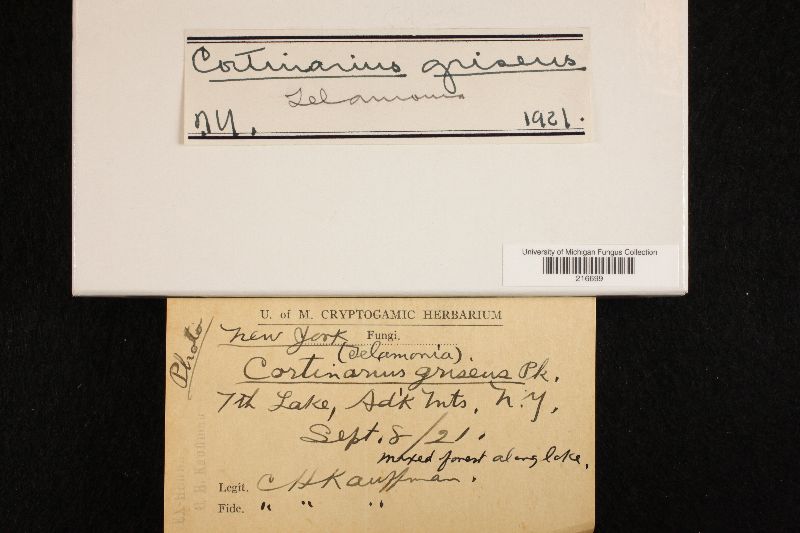 Cortinarius griseus
Telamonia
N.Y. 1921.
University of Michigan Fungus Collection
216699
U. of M. CRYPTOGAMIC HERBARIUM
Photo
New York Fungi.
(Telamonia).
Cortinarius griseus Pk.
7th Lake, Ad'k Mts, N.Y.
Sept. 8/21.
mixed forest along lake.
Legit. C H Kauffman.
Fide. " " "